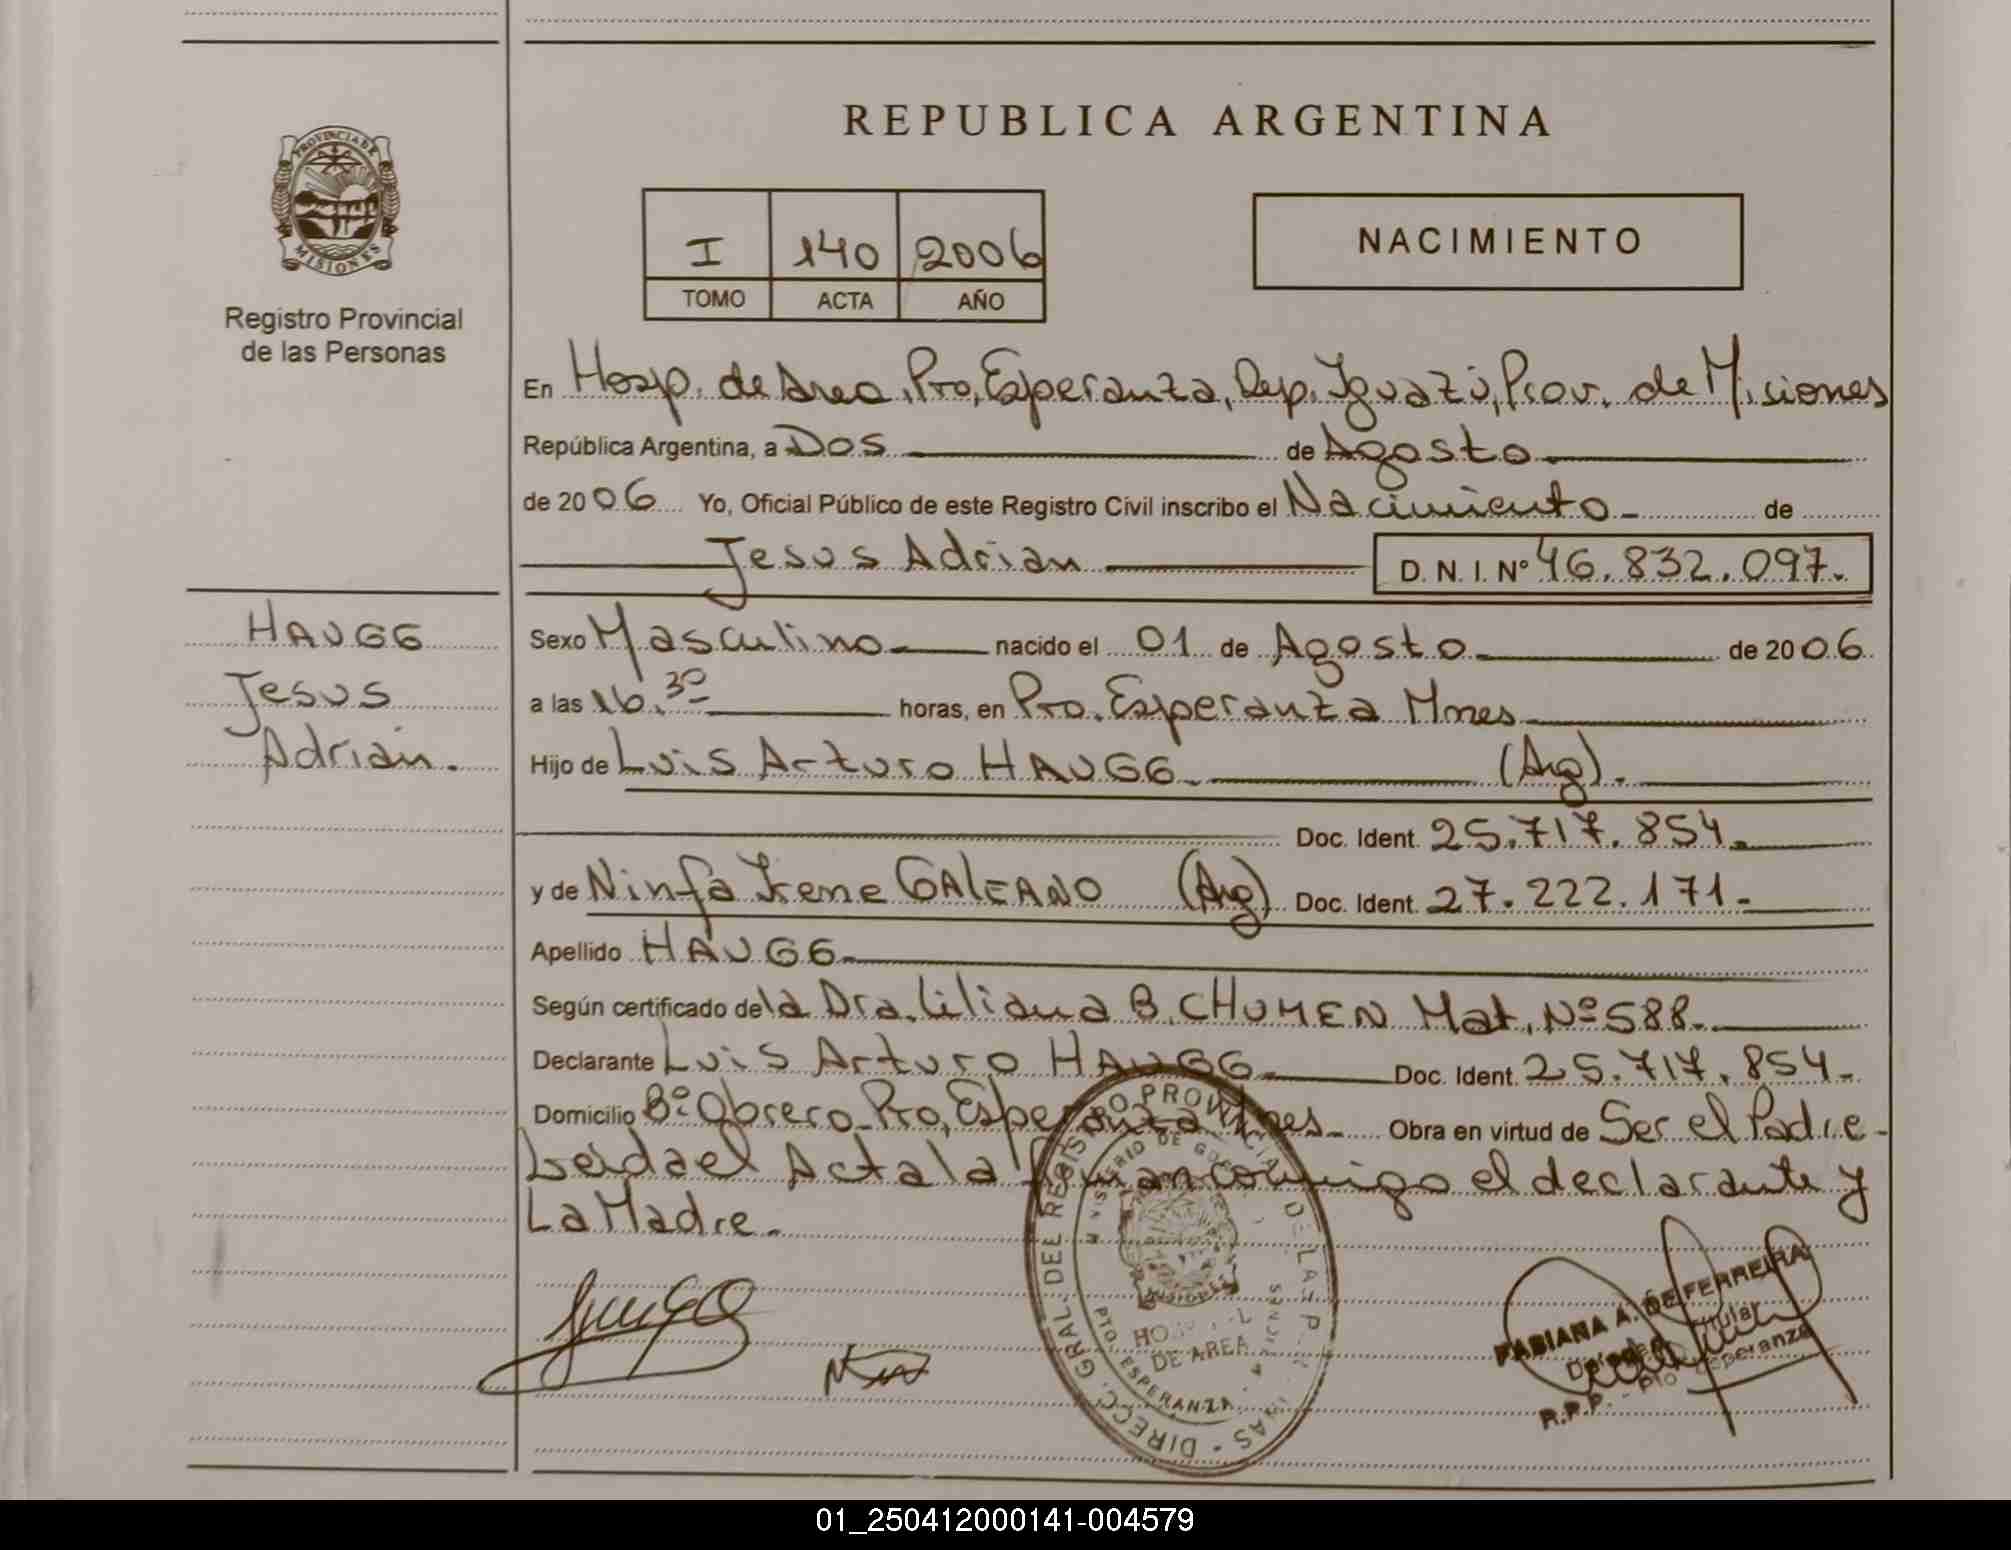 REPUBLICA ARGENTINA
PROVINCIA DE
MISIONES
Registro Provincial
de las Personas
I 140 2006
TOMO ACTA AÑO
NACIMIENTO
En Hosp. de Area, Pto, Esperanza, Dep. Iguazú, Prov. de Misiones
República Argentina, a Dos de Agosto
de 2006 Yo, Oficial Público de este Registro Civil inscribo el Nacimiento de
Jesus Adrian D. N. I. Nº 46.832.097.
HAUGG
Jesus
Adrian.
Sexo Masculino nacido el 01 de Agosto de 2006
a las 16.30 horas, en Pto. Esperanza Mnes
Hijo de Luis Arturo HAUGG (Arg).
Doc. Ident. 25.717.854.
y de Ninfa Irene GALEANO (Arg) Doc. Ident. 27.222.171.
Apellido HAUGG
Según certificado de la Dra. Liliana B. CHUMEN Mat. Nº 588.
Declarante Luis Arturo HAUGG Doc. Ident. 25.717.854.
Domicilio Bº Obrero Pto, Esperanza Mnes Obra en virtud de Ser el Padre
Leida el Acta la firman conmigo el declarante y
La Madre.
DIRECC. GRAL. DEL REGISTRO PROVINCIAL DE LAS
MINISTERIO DE
MISIONES
DE AREA
PTO. ESPERANZA
FABIANA A. DE FERREIRA
Titular
R.P.P. - Pto Esperanza
01_250412000141-004579